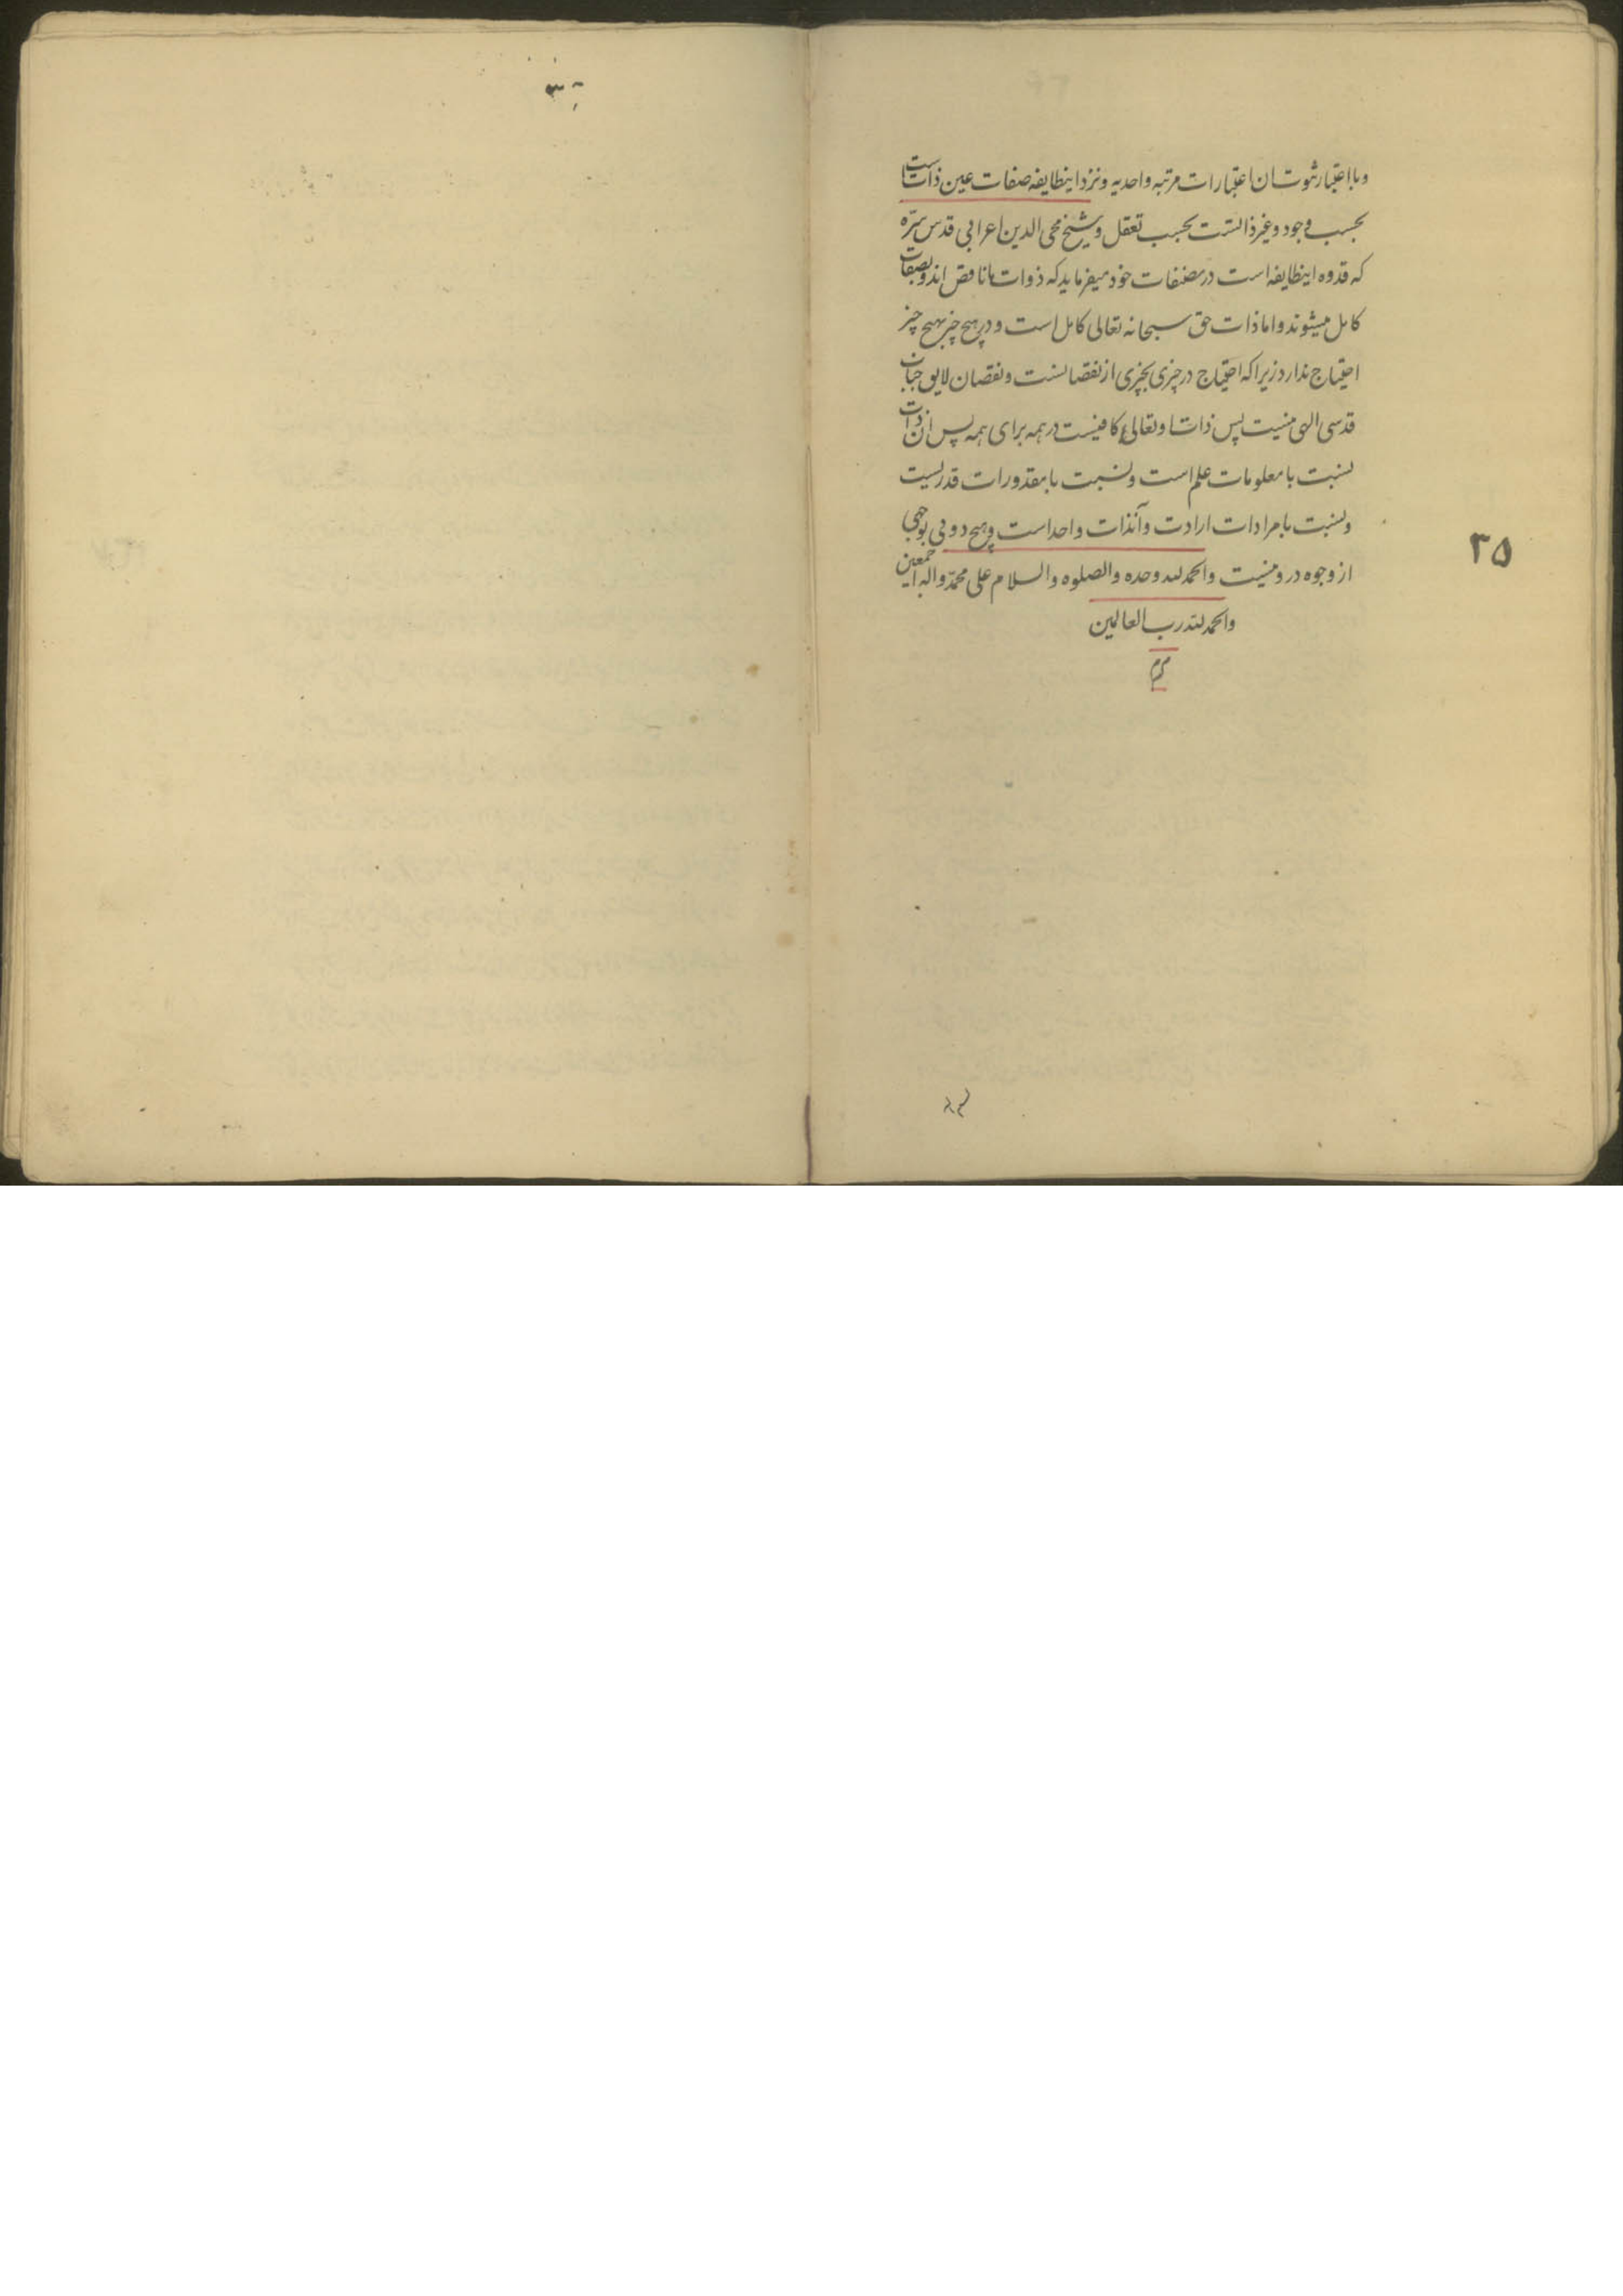 و با اعتبار ثبوت ان اعتبارات مرتبه واحدیه و نزد اینطایفه صفات عین ذاتست
بحسب وجود و غیر ذاتست بحسب تعقل و شیخ محی الدین اعرابی قدس سرّه
که قدوه اینطایفه است در مصنفات خود میفرماید که ذوات ما ناقص اند و بصفات
کامل میشوند و اما ذات حق سبحانه تعالی کامل است و در هیچ چیز بهیچ چیز
احتیاج ندارد زیرا که احتیاج در چیزی بچیزی از نقصانست و نقصان لایق جناب
قدسی الهی نیست پس ذات او تعالی کافیست در همه برای همه پس ان ذات
نسبت با معلومات علم است و نسبت با مقدورات قدرتست
و نسبت با مرادات ارادت و آنذات واحد است و هیچ دوئی بوجهی
از وجوه درو نیست و الحمد لله وحده والصلوه والسلام علی محمّد و اله اجمعین
والحمد لله رب العالمین
۳۵